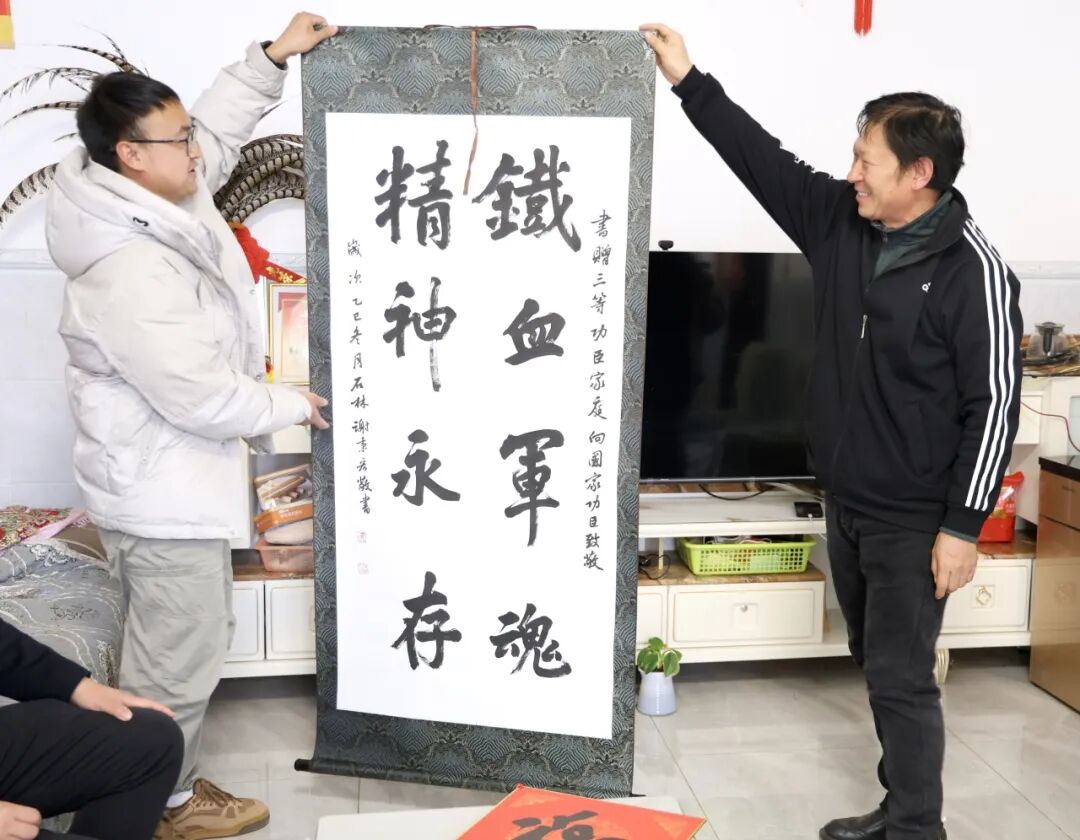 書贈三等功臣家庭向國家功臣致敬
鐵血軍魂
精神永存
歲次乙巳冬月石林謝秉宏敬書
福